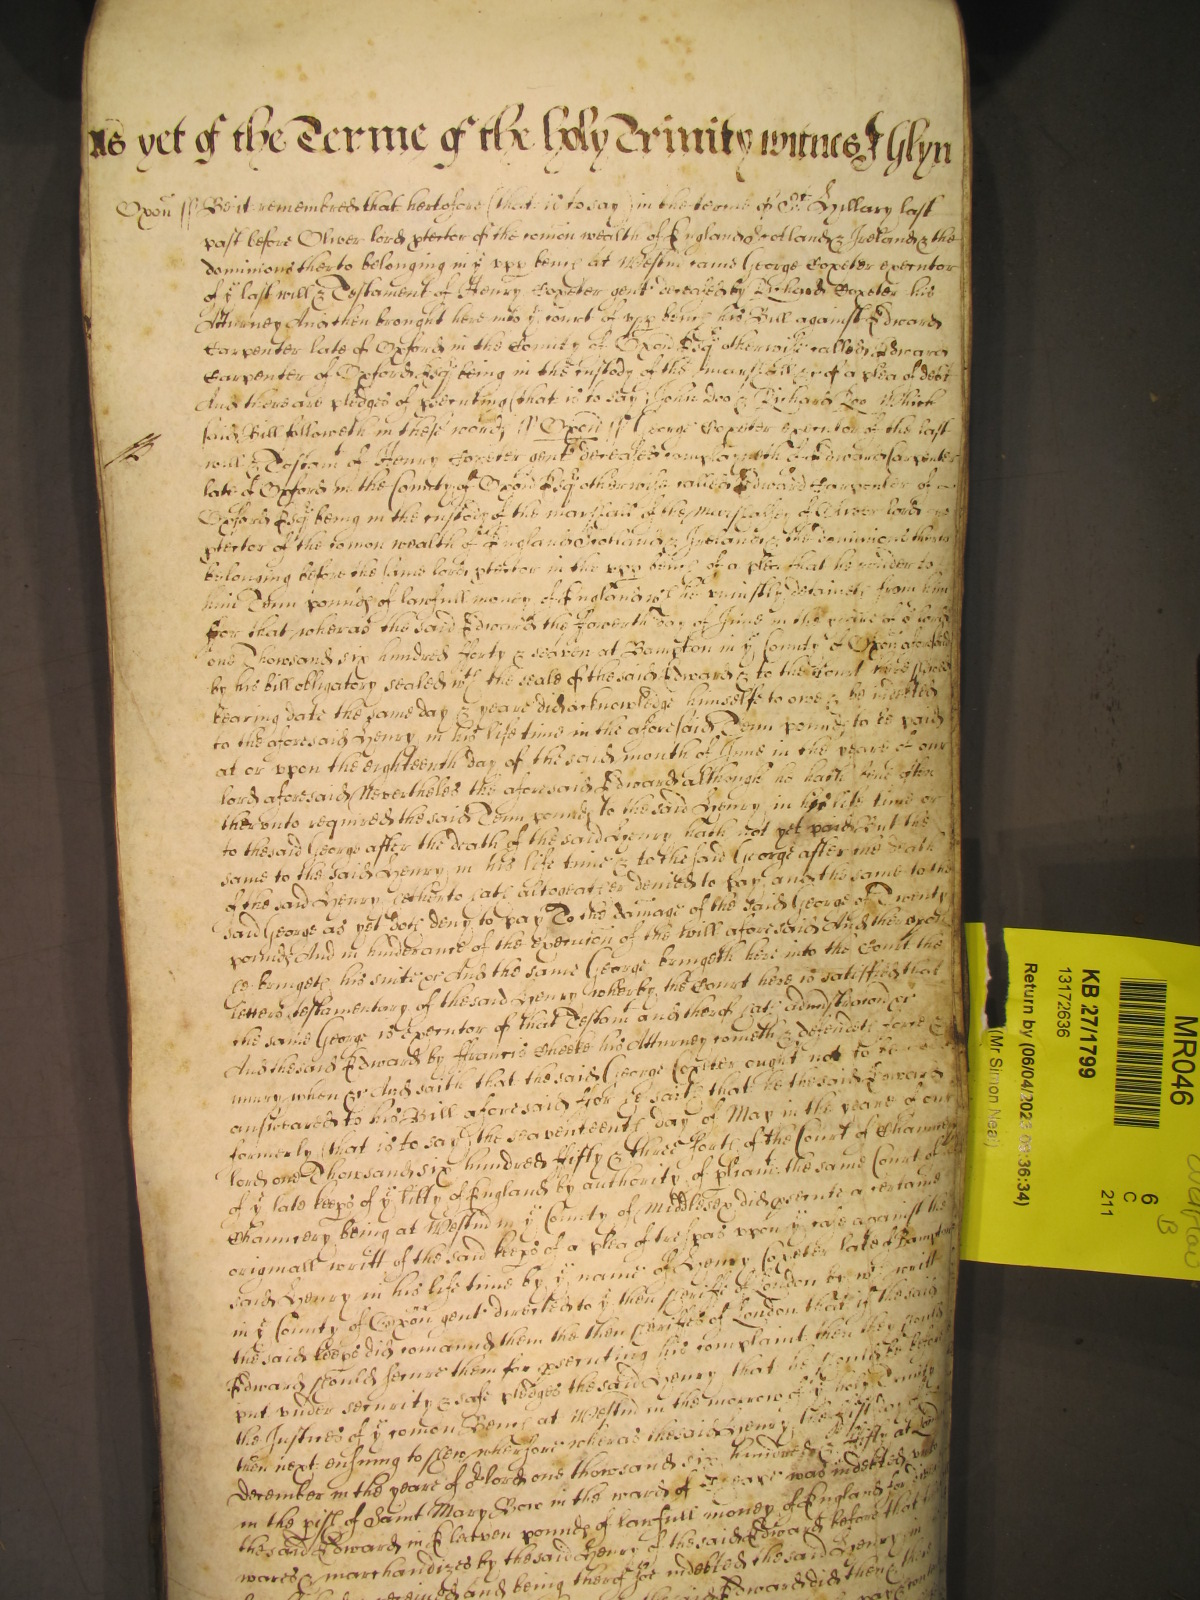 As yet of the Terme of the holy Trinity witnes J Glyn
Oxon ss Be it remembred that hertofore (that is to say) in the terme of St Hillary last
past before Oliver lord ptector of the comon wealth of England Scotland & Ireland & the
dominions therto belonging in ye upp bench at Westm came George Coxeter executor
of ye last will & Testament of Henry Coxeter gent deceased by Richard Coxeter his
Atturney And then brought here into ye court of upp bench his Bill against Edward
Carpenter late of Oxford in the County of Oxon Esqr otherwise called Edward
Carpenter of Oxford Esqr being in the custody of the marshall &c of a plea of debt
And there are pledges of psecuting (that is to say) John Doo & Richard Roo Which
said Bill followeth in these words ss Oxon ss George Coxeter executor of the last
will & Testamt of Henry Coxeter gent deceased complayneth of Edward Carpenter
late of Oxford in the County of Oxon Esqr otherwise called Edward Carpenter of
Oxford Esqr being in the custody of the marshall of the marshalsey of Oliver lord
ptector of the comon wealth of England Scotland & Ireland & the dominions therto
belonging before the same lord ptector in the upp bench of a plea that he render to
him Tenn pounds of lawfull money of England wch he uniustly detaineth from him
For that wheras the said Edward the fowerth day of June in the yeare of or lord
one Thowsand six hundred forty & seaven at Bampton in ye County of Oxon aforesaid
by his bill obligatory sealed wth the seale of the said Edward & to the Court here shewed
bearing date the same day & yeare did acknowledge himselfe to owe & be indebted
to the aforesaid Henry in his life time in the aforesaid Tenn pounds to be paid
at or upon the eighteenth day of the said month of June in the yeare of our
lord aforesaid Nevertheles the aforesaid Edward although he hath bine often
therunto required the said Tenn pounds to the said Henry in his life time or
to the said George after the death of the said Henry hath not yet paid But the
same to the said Henry in his life time & to the said George after the death
of the said Henry hetherto hath altogeather denied to pay and the same to the
said George as yet doth deny to pay To the damage of the said George of Twenty
pounds And in hinderance of the execucion of the will aforesaid And therupon
he bringeth his suite &c And the same George bringeth here into the Court the
letters testamentary of the said Henry wherby the Court here is satisfied that
the same George is executor of that Testamt and therof hath administracion &c
And the said Edward by Francis Cheeke his Atturney cometh & defendeth force &
iniury when &c And saith that the said George Coxeter ought not to be
answeared to his Bill aforesaid For he saith that he the said Edward
formerly (that is to say) the seaventeenth day of May in the yeare of our
lord one Thowsand six hundred fifty & three forth of the Court of Chauncery
of ye late keeps of ye libty of England by authority of pliamt the same Court of
Chauncery being at Westm in ye County of Middlesex did psecute a certaine
originall writt of the said keeps of a plea of trespas upon ye case against the
said Henry in his life time by ye name of Henry Coxeter late of Bampton
in ye County of Oxon gent directed to ye then sheriffes of London by wch writt
the said keeps did comannd them the then sheriffes of London that if the said
Edward should secure them for psecuting his complaint then they should
put under security & safe pledges the said Henry that he should be before
the Justices of ye comon Bench at Westm in the morrow of ye holy Trinity
then next ensuing to shew wherfore wheras the said Henry the first day of
December in the yeare of or lord one thowsand six hundred & fifty at London
in the pish of Saint Mary Bow in the ward of Cheape was indebted unto
the said Edward in Eleaven pounds of lawfull money of England for divers
wares & marchandizes by the said Henry of the said Edward before that
and being therof soe indebted the said Henry in
Edward did then & there
MR046
KB 27/1799
13172636
Return by (06/04/2023 09:36:34)
(Mr Simon Neal)
6
C
211